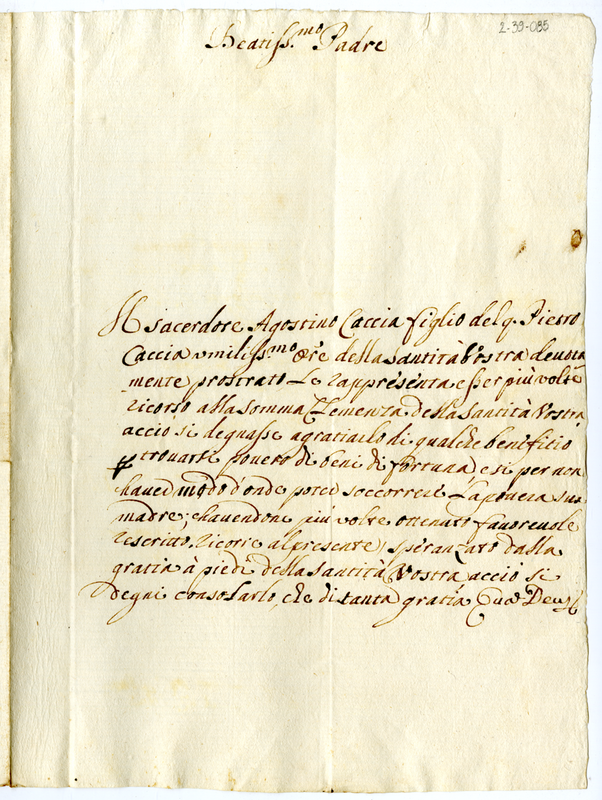 2-39-085
Beatiss.mo Padre
Il sacerdote Agostino Caccia figlio del q. Pietro
Caccia umiliss.mo Ore della santità Vostra devota
mente prostrato Le rappresenta esser più volte
ricorso alla somma Clemenza della santità Vostra
acciò si degnasse agratiarlo di qualche benefitio
p trovarsi povero di beni di fortuna e si per non
haver modo d'onde poter soccorrere la povera sua
madre; e havendone più volte ottenuto favorevole
rescritto, ricorre al presente speranzato dalla
gratia à piedi della santità Vostra acciò si
degni consolarlo, che di tanta gratia Quā Deus